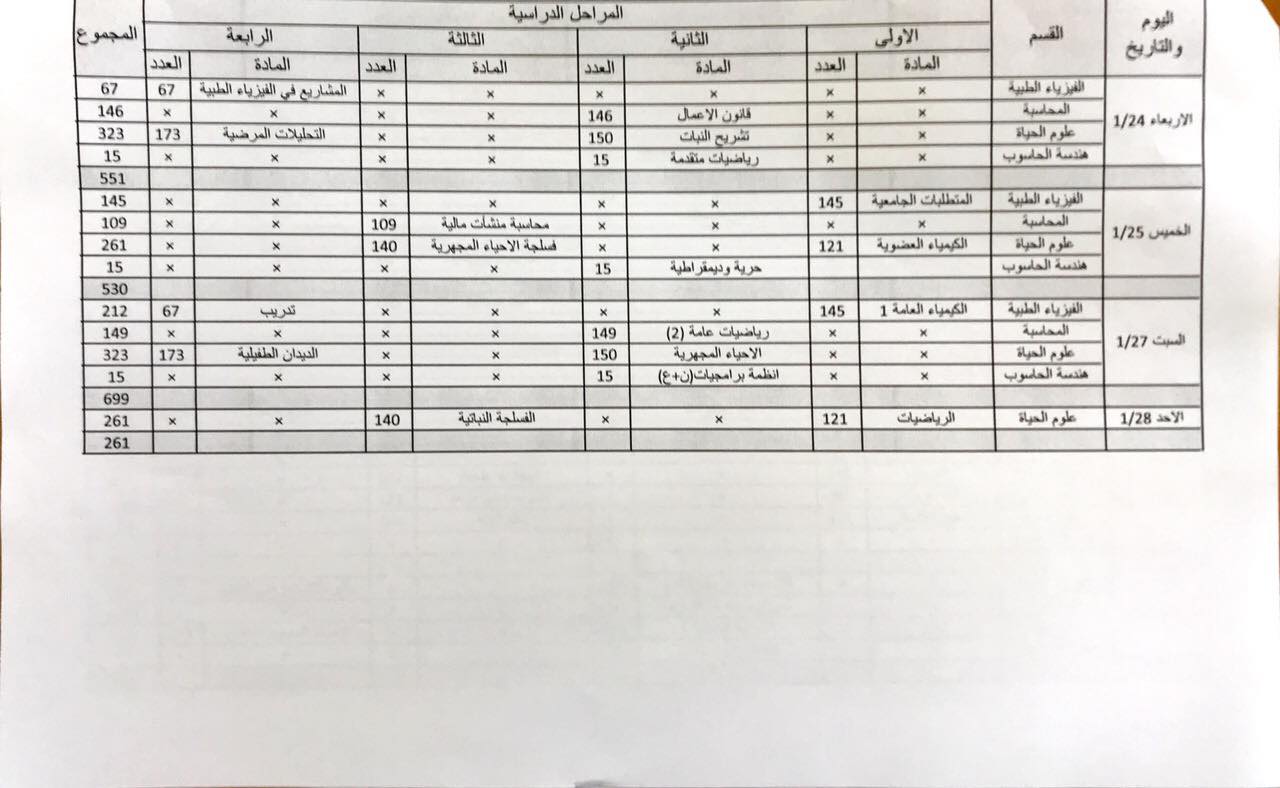 المراحل الدراسية
اليوم والتاريخ القسم الاولى الثانية الثالثة الرابعة المجموع
المادة العدد المادة العدد المادة العدد المادة العدد
الاربعاء 1/24 الفيزياء الطبية × × × × × × المشاريع في الفيزياء الطبية 67 67
المحاسبة × × قانون الاعمال 146 × × × × 146
علوم الحياة × × تشريح النبات 150 × × التحليلات المرضية 173 323
هندسة الحاسوب × × رياضيات متقدمة 15 × × × × 15
551
الخميس 1/25 الفيزياء الطبية المتطلبات الجامعية 145 × × × × × × 145
المحاسبة × × × × محاسبة منشأت مالية 109 × × 109
علوم الحياة الكيمياء العضوية 121 × × فسلجة الاحياء المجهرية 140 × × 261
هندسة الحاسوب حرية وديمقراطية 15 × × × × 15
530
السبت 1/27 الفيزياء الطبية الكيمياء العامة 1 145 × × × × تدريب 67 212
المحاسبة × × رياضيات عامة (2) 149 × × × × 149
علوم الحياة × × الاحياء المجهرية 150 × × الديدان الطفيلية 173 323
هندسة الحاسوب × × انظمة برامجيات(ن+ع) 15 × × × × 15
699
الاحد 1/28 علوم الحياة الرياضيات 121 × × الفسلجة النباتية 140 × × 261
261